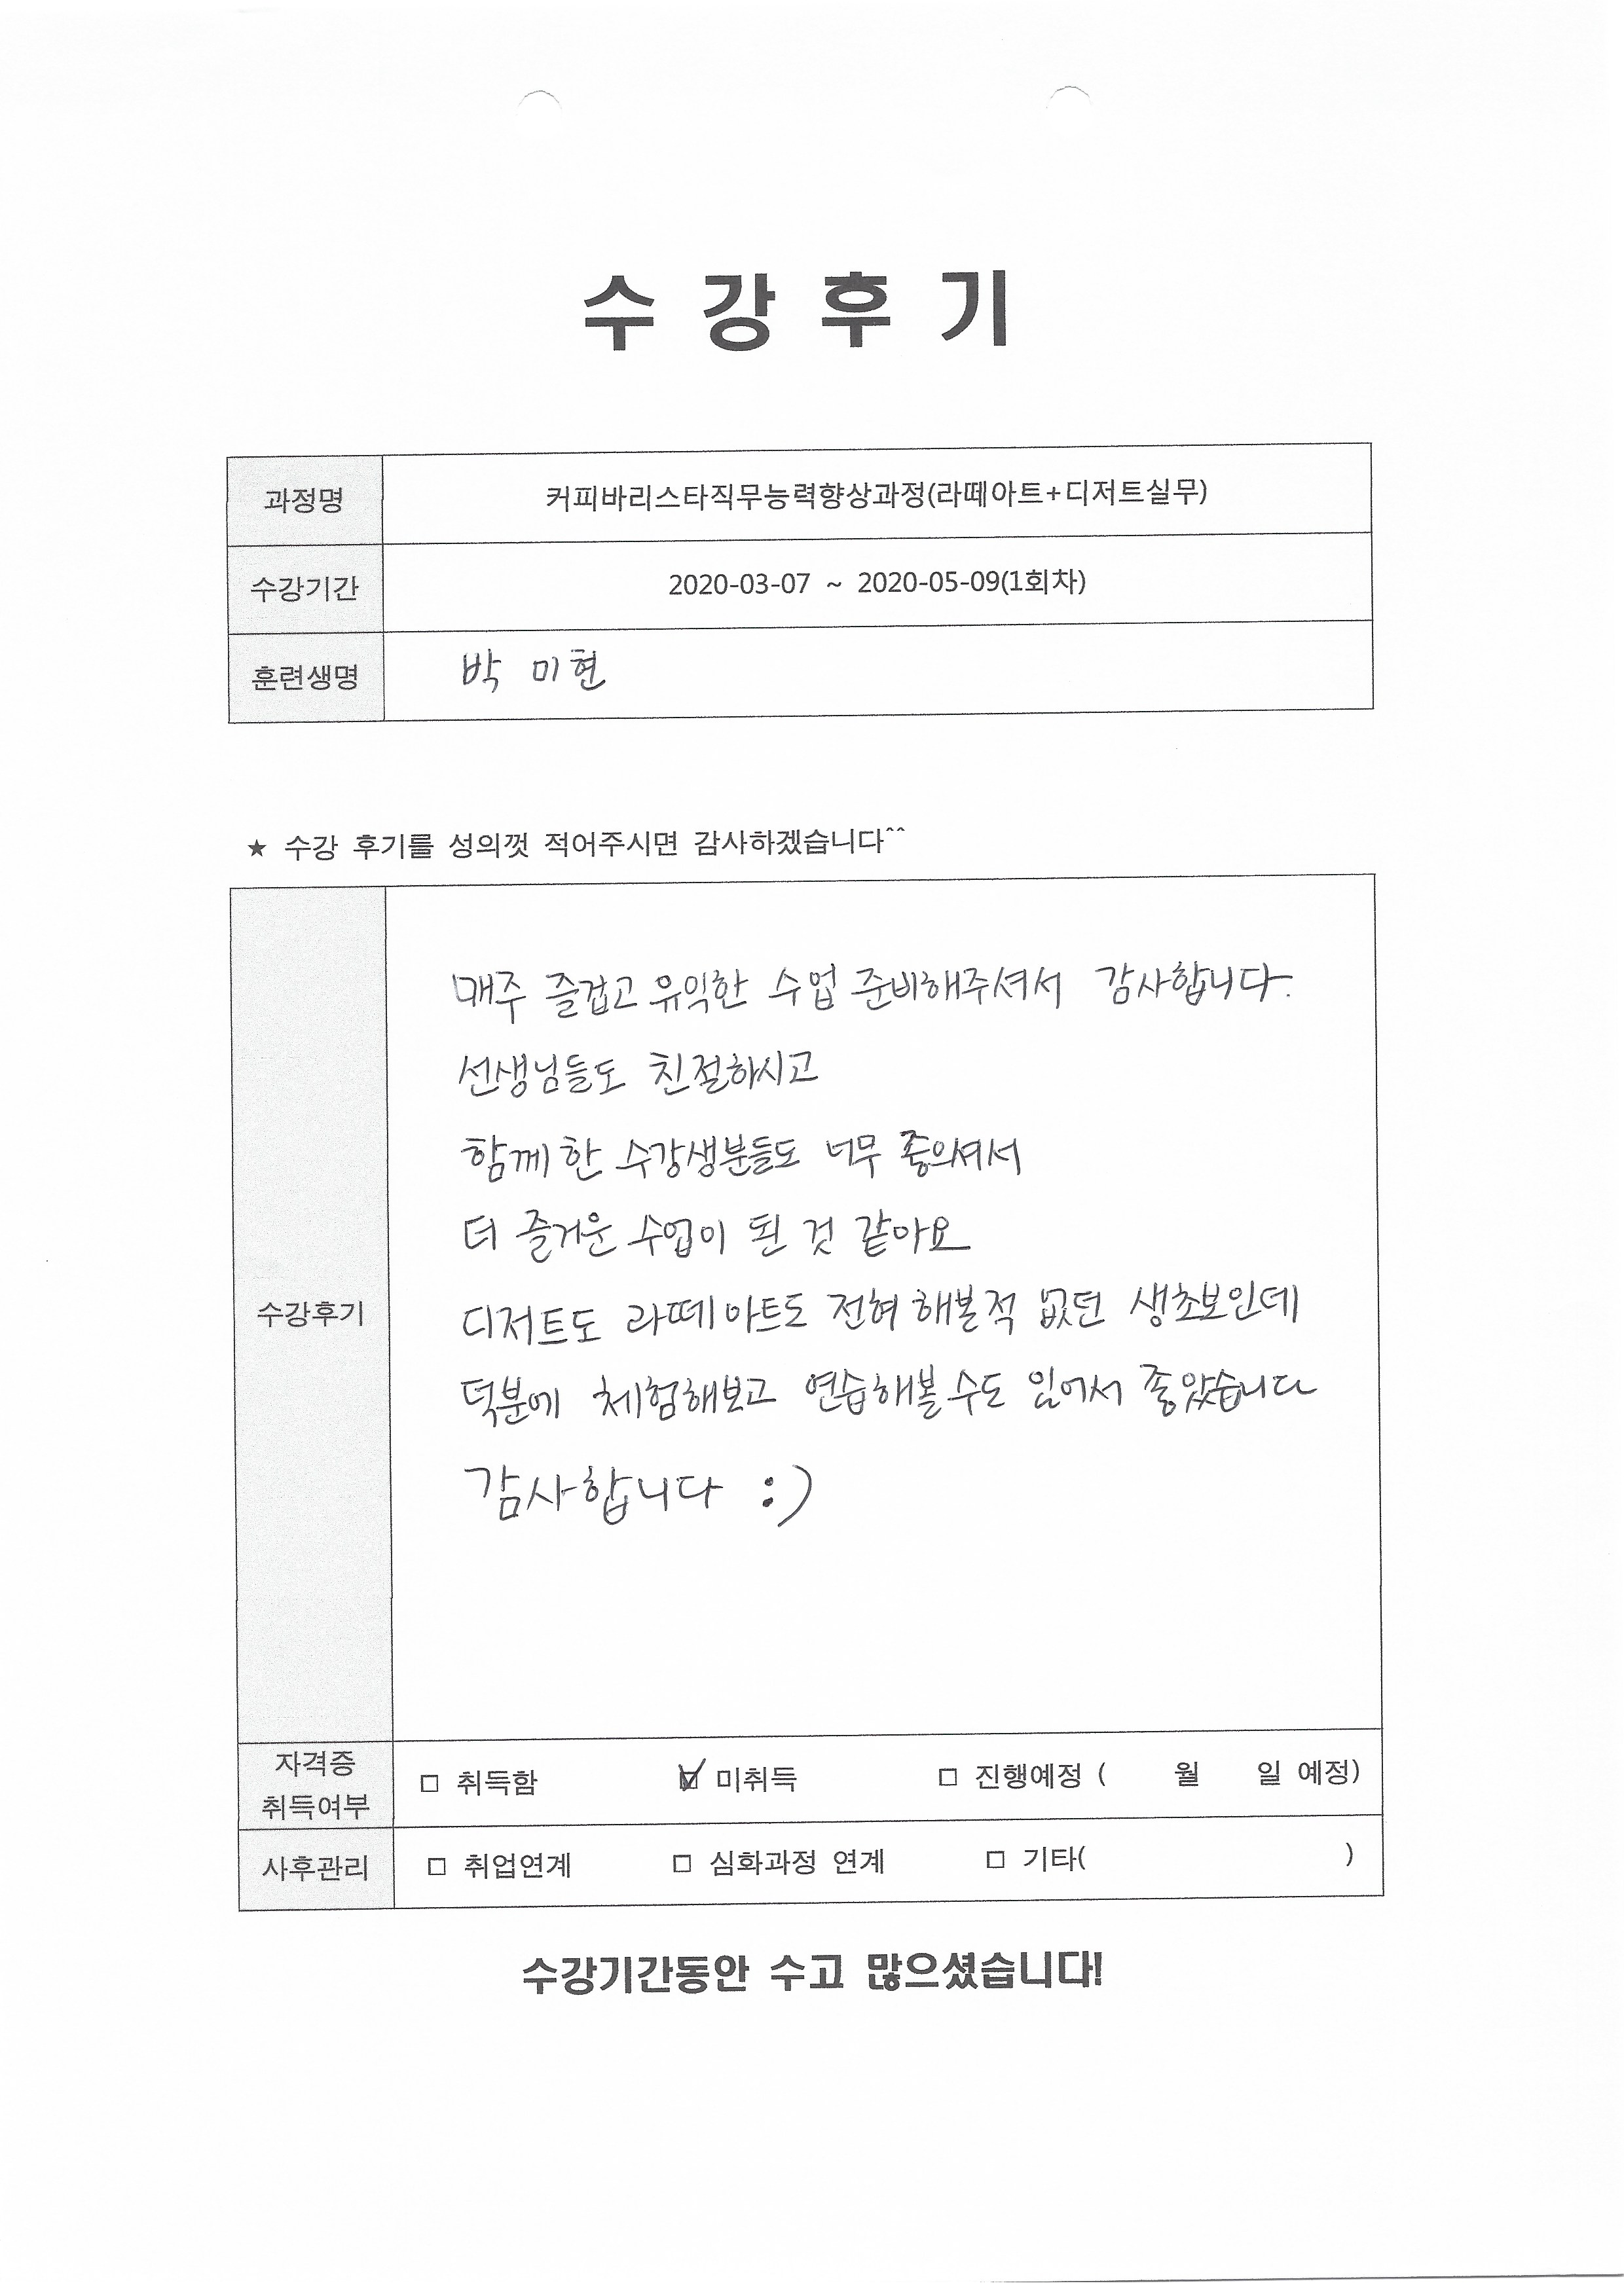 수 강 후 기
과정명 커피바리스타직무능력향상과정(라떼아트+디저트실무)
수강기간 2020-03-07 ~ 2020-05-09(1회차)
훈련생명 박 미현
★ 수강 후기를 성의껏 적어주시면 감사하겠습니다^^
수강후기
매주 즐겁고 유익한 수업 준비해주셔서 감사합니다.
선생님들도 친절하시고
함께 한 수강생분들도 너무 좋으셔서
더 즐거운 수업이 된 것 같아요
디저트도 라떼아트도 전혀 해본적 없던 생초보인데
덕분에 체험해보고 연습해볼 수도 있어서 좋았습니다
감사합니다 :)
자격증
취득여부
□ 취득함 ☑ 미취득 □ 진행예정 ( 월 일 예정)
사후관리 □ 취업연계 □ 심화과정 연계 □ 기타( )
수강기간동안 수고 많으셨습니다!